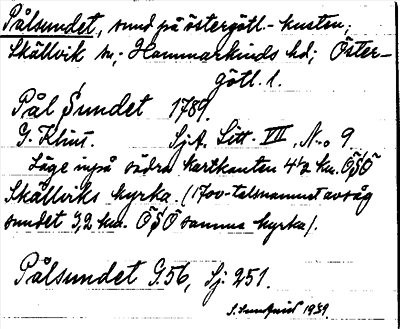 Pålsundet, sund på östergötl.-kusten;
Skällvik sn; Hammarkinds hd; Öster-
götl. l.
Pål Sundet 1789.
G. Klint. SjA. Litt. VII, N:o 9
Läge inpå södra kartkanten 4 1/2 km. ÖSÖ
Skällviks kyrka. (1700-talsnamnet avsåg
sundet 3,2 km. ÖSÖ samma kyrka).
Pålsundet G.56, Sj. 251.
1939.